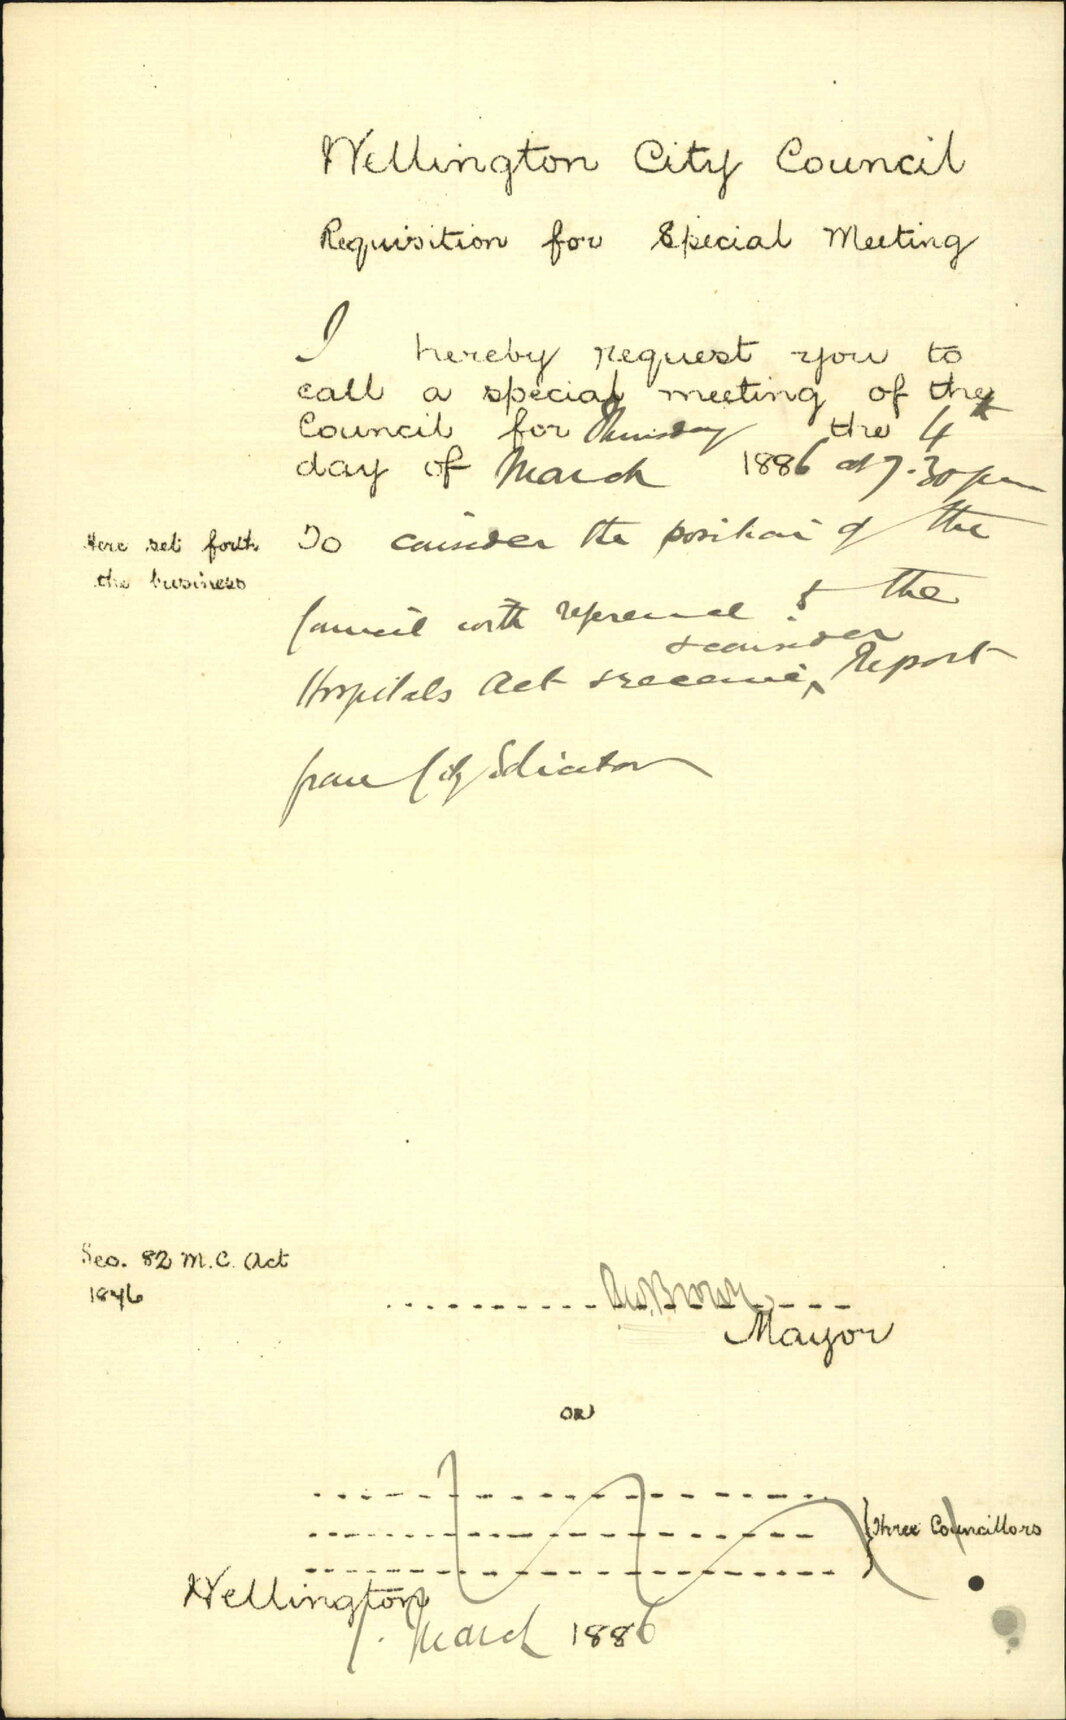 Wellington City Council
Requisition for Special Meeting
I hereby request you to
call a special meeting of the
Council for Thursday the 4th
day of March 1886 at 7.30 pm
Here set forth
the business
To consider the position of the
Council with reference to the
& consider
Hospitals Act & receive ‸ Report
from City Solicitor
Sec. 82 M.C. Act
1876
Brown
Mayor
OR
Three Councillors
Wellington
1. March 1886